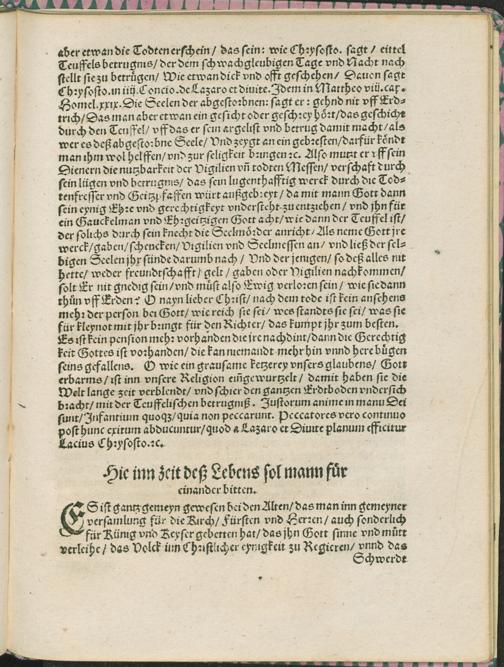 aber etwan die Todten erschein / das sein: wie Chrysosto. sagt / eittel
Teuffels betrugnis / der dem schwachgleubigen Tage vnd Nacht nach
stellt sie zu betrügen / Wie etwan dick vnd offt geschehen / Dauon sagt
Chrysosto. in iiij. Concio. de Lazaro et diuite. Idem in Mattheo viij. cap.
Homel. xxix. Die Seelen der abgestorbnen: sagt er: gehnd nit vff Erd-
trich / Das man aber etwan ein gesicht oder geschrey hört / das geschicht
durch den Teuffel / vff das er sein argelist vnd betrug damit macht / als
wer es deß abgestorbne Seele / Vnd zeygt an ein gebresten / darfür köndt
man ihm wol helffen / vnd zur seligkeit bringen ꝛc. Also mutzt er vff sein
Dienern die nutzbarkeit der Vigilien vñ todten Messen / verschaft durch
sein lügen vnd betrugnis / das sein lugenthafftig werck durch die Tod-
tenfresser vnd Geitzpfaffen würt außgebreyt / da mit man Gott dann
sein eynig Ehre vnd gerechtigkeyt vndersteht zu entziehen / vnd jhn für
ein Gauckelman vnd Ehrgeitzigen Gott acht / wie dann der Teuffel ist /
der solichs durch sein knecht die Seelmörder anricht / Als neme Gott jre
werck / gaben / schencken / Vigilien vnd Seelmessen an / vnd ließ der sel-
bigen Seelen jhr sünde darumb nach / Vnd der jenigen / so deß alles nit
hette / weder freundtschafft / gelt / gaben oder Vigilien nachkommen /
solt Er nit gnedig sein / vnd müst also Ewig verloren sein / wie sie dann
thün vff Erden? O nayn lieber Christ / nach dem tode ist kein ansehens
mehr der person bey Gott / wie reich sie sei / wes standts sie sei / was sie
für kleynot mit jhr bringt für den Richter / das kumpt jhr zum besten.
Es ist kein pension mehr vorhanden die jre nach dint / dann die Gerechtig
keit Gottes ist vorhanden / die kan niemandt mehr hin vnnd here bügen
seins gefallens. O wie ein grausame ketzerey vnsers glaubens / Gott
erbarms / ist inn vnsere Religion eingewurtzelt / damit haben sie die
Welt lange zeit verblendt / vnd schier den gantzen Erdtboden vndersich
bracht / mit der Teuffelischen betrugniß. Iustorum anime in manu Dei
sunt / Infantium quoqꝫ / quia non peccarunt. Peccatores vero continuo
post hunc exitum abducuntur / quod à Lazaro et Diuite planum efficitur
Lacius Chrysosto. ꝛc.
Hie inn zeit deß Lebens sol mann für
einander bitten.
ES ist gantz gemeyn gewesen bei den Alten / das man inn gemeyner
versamlung für die Kirch / Fürsten vnd Herren / auch sonderlich
für Künig vnd Keyser gebetten hat / das jhn Gott sinne vnd mütt
verleihe / das Volck inn Christlicher eynigkeit zu Regieren / vnnd das
Schwerdt